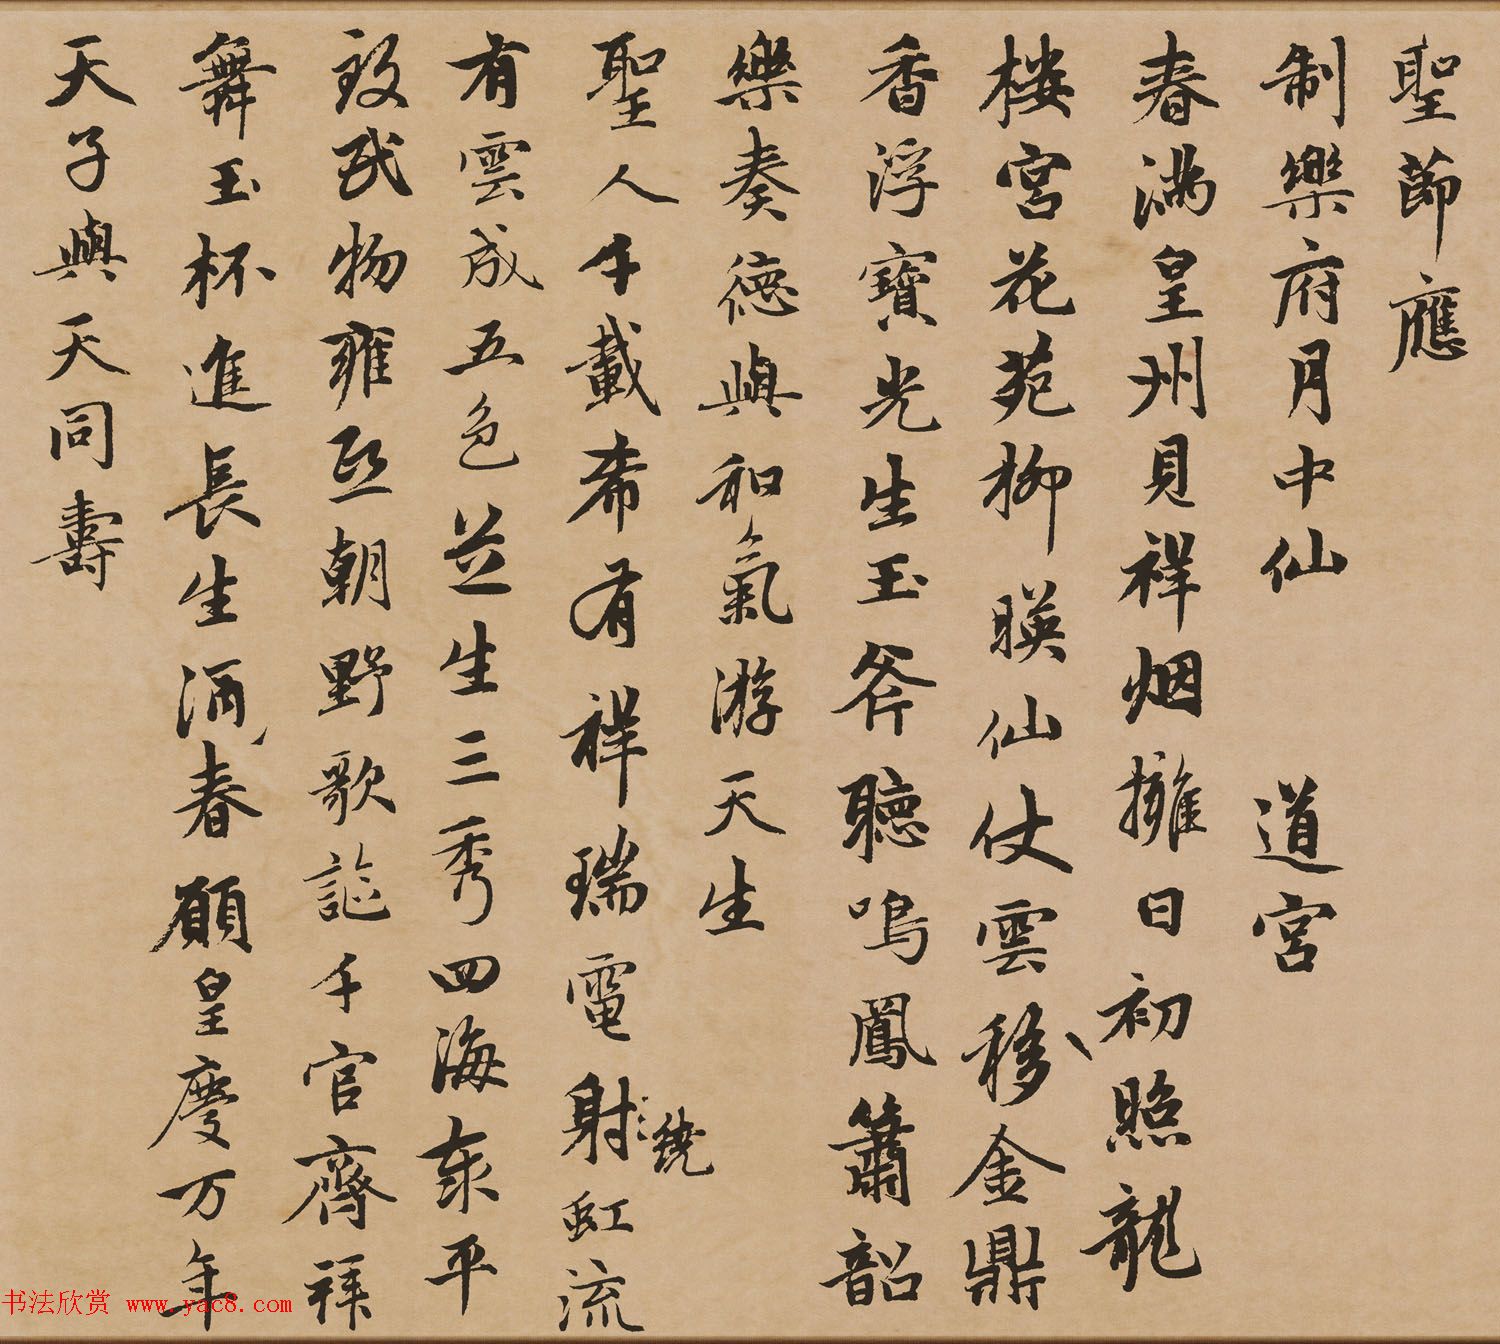 聖節應
制樂府月中仙　道宮
春滿皇州見祥烟擁日初照龍
楼宮花苑柳暎仙仗雲移金鼎
香浮寶光生玉斧聽鳴鳳簫韶
樂奏德與和氣游天生
聖人千載希有祥瑞電射虹流
繞
有雲成五色並生三秀四海乘平
致民物雍熙朝野歌謳千官齊拜
舞玉杯進長生酒春願皇慶万年
天子與天同壽
书法欣赏 www.yac8.com